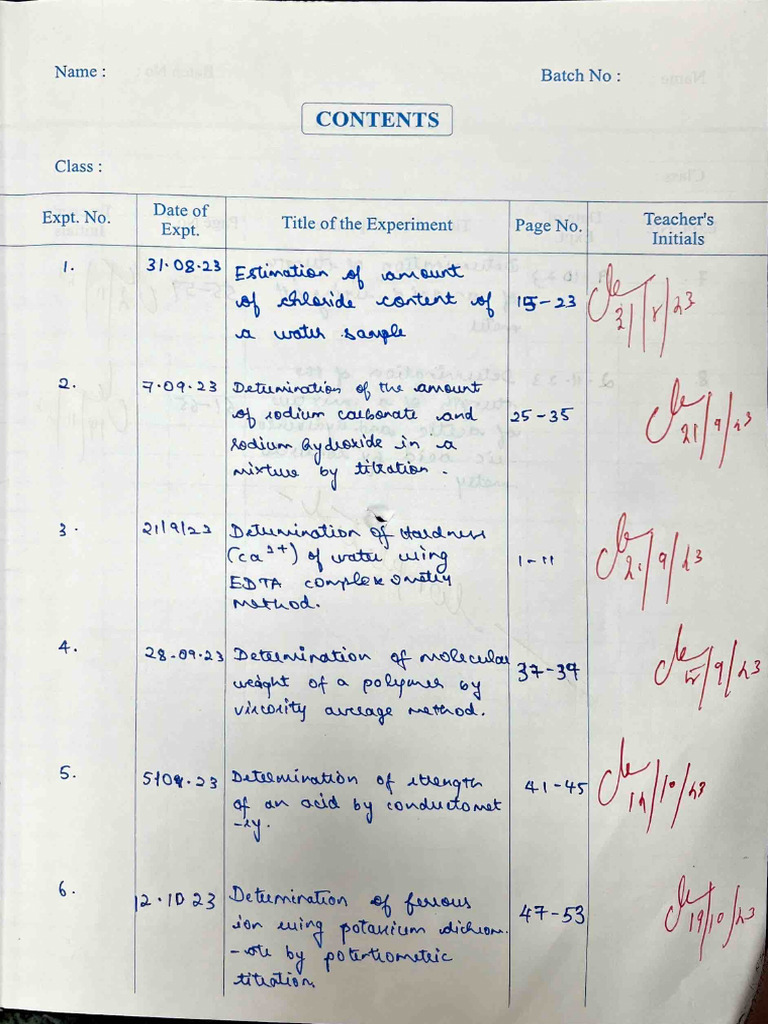 Name :
Batch No :
CONTENTS
Class :
Expt. No.
Date of
Expt.
Title of the Experiment
Page No.
Teacher's
Initials
1.
31.08.23
Estimation of amount
of chloride content of
a water sample
15-23
31/8/23
2.
7.09.23
Determination of the amount
of sodium carbonate and
sodium hydroxide in a
mixture by titration.
25-35
21/9/23
3.
21/9/23
Determination of Hardness
(ca2+) of water using
EDTA complexometry
method.
1-11
21/9/23
4.
28.09.23
Determination of molecular
weight of a polymer by
viscosity average method.
37-39
/9/23
5.
Determination of strength
of an acid by conductomet
-ry.
41-45
/10/23
6.
12.10 23
Determination of ferrous
ion using potassium dichrom.
-ate by potentiometric
titration.
47-53
19/10/23